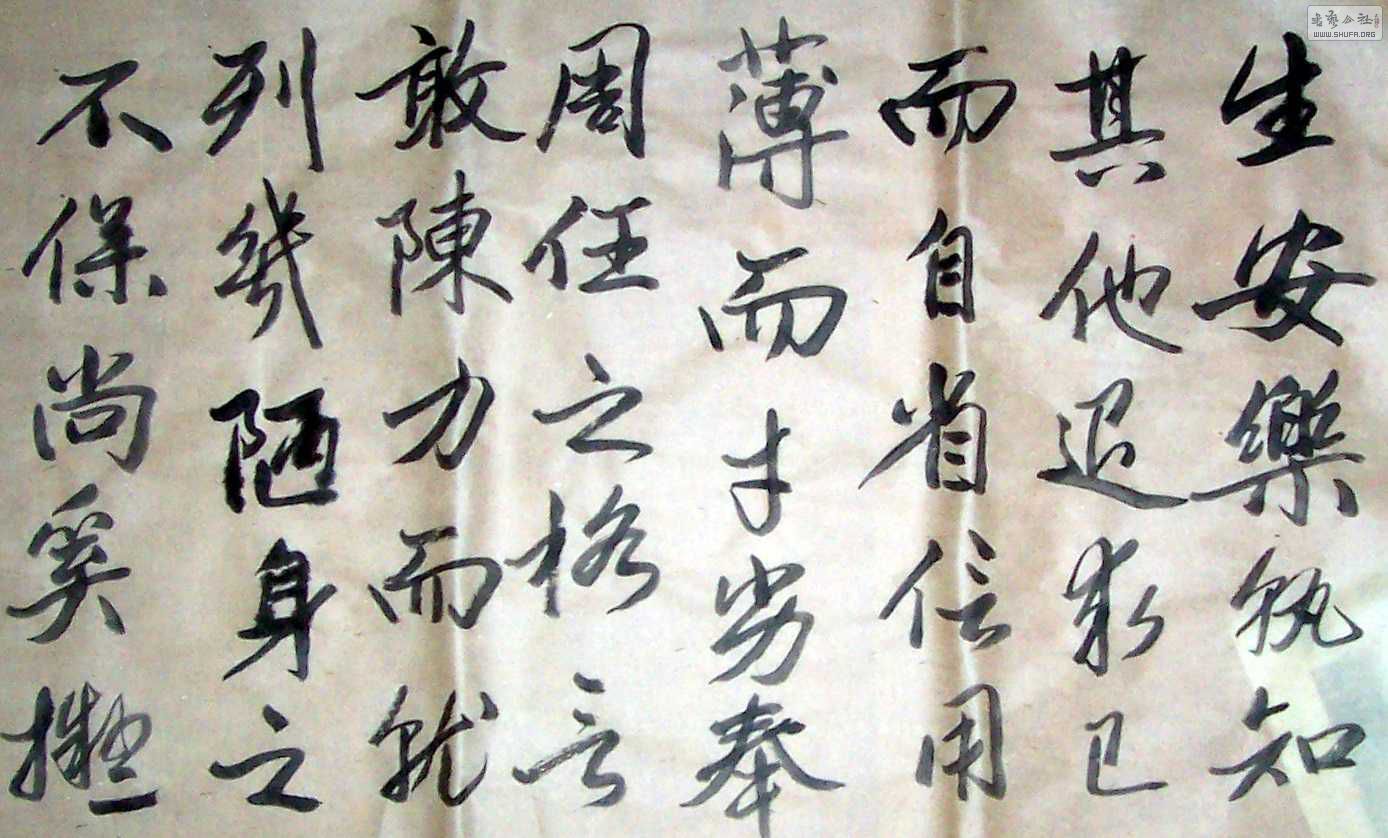 生安樂孰知
其他退求己
而自省信用
薄而才劣奉
周任之格言
敢陳力而就
列幾陋身之
不保尚奚擬
書藝公社
WWW.SHUFA.ORG